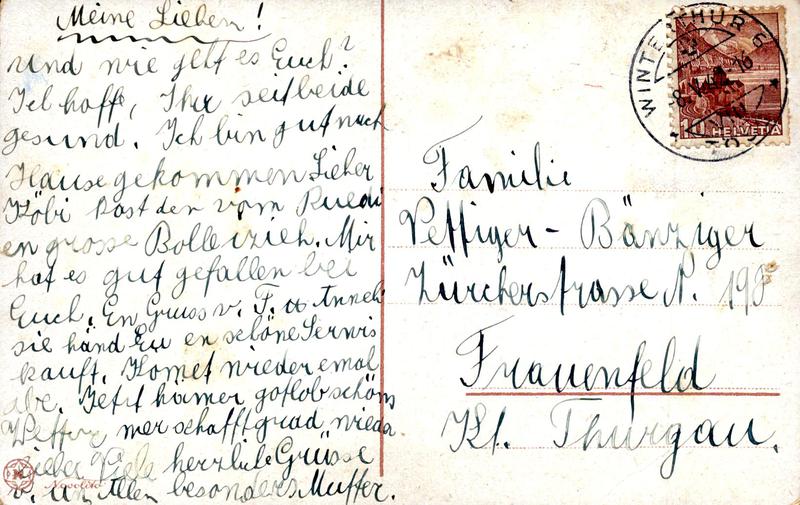 Meine Lieben!
Und wie geht es Euch?
Ich hoffe, Ihr seit beide
gesund. Ich bin gut nach
Hause gekommen Lieber
Köbi hast den vom Ruedi
en grosse Bolle izieh. Mir
hat es gut gefallen bei
Euch. En Gruss v. F. u Anneli
sie händ Eu en schöne Servis
kauft. Komet wieder emal
abe. Jetzt hämer gotlob schöns
Wetter mer schafft grad wieder
Lieber Viele herzliche Grüsse
v. un Allen besonders Mutter.
Novolito
WINTERTHUR 6
HELVETIA
Familie
Pettiger - Bänziger
Zürcherstrasse N. 190
Frauenfeld
Kt. Thurgau.